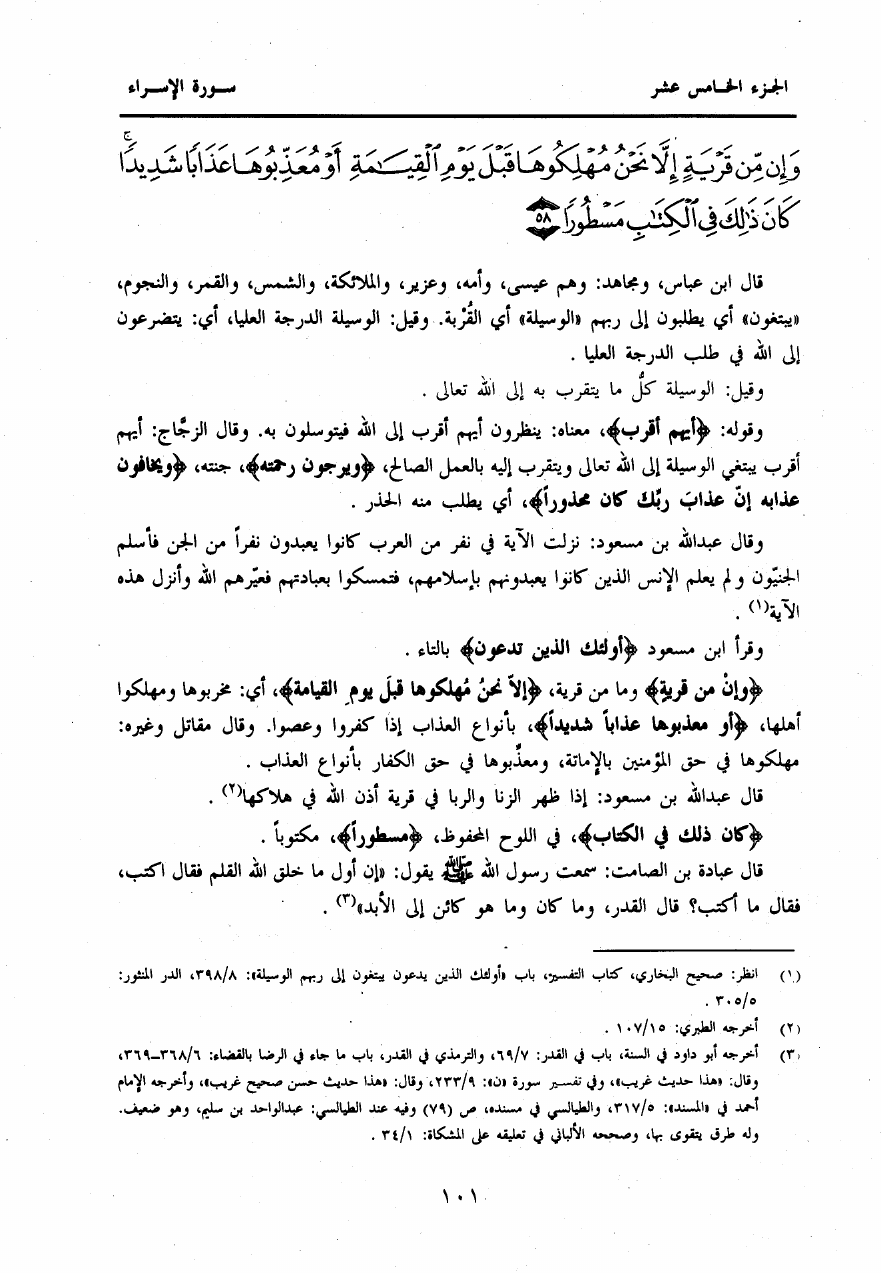 الجزء الخامس عشر
سورة الإسراء
وَإِن مِّن قَرْيَةٍ إِلَّا نَحْنُ مُهْلِكُوهَا قَبْلَ يَوْمِ ٱلْقِيَـٰمَةِ أَوْ مُعَذِّبُوهَا عَذَابًا شَدِيدًا ۚ
كَانَ ذَٰلِكَ فِى ٱلْكِتَـٰبِ مَسْطُورًا ٥٨
قال ابن عباس، ومجاهد: وهم عيسى، وأمه، وعزير، والملائكة، والشمس، والقمر، والنجوم،
«يبتغون» أي يطلبون إلى ربهم «الوسيلة» أي القُرْبة. وقيل: الوسيلة الدرجة العليا، أي: يتضرعون
إلى الله في طلب الدرجة العليا .
وقيل: الوسيلة كلُّ ما يتقرب به إلى الله تعالى .
وقوله: ﴿أيهم أقرب﴾، معناه: ينظرون أيهم أقرب إلى الله فيتوسلون به. وقال الزجَّاج: أيهم
أقرب يبتغي الوسيلة إلى الله تعالى ويتقرب إليه بالعمل الصالح، ﴿ويرجون رحمته﴾، جنته، ﴿ويخافون
عذابه إنّ عذابَ ربّك كان محذوراً﴾، أي يطلب منه الحذر .
وقال عبدالله بن مسعود: نزلت الآية في نفر من العرب كانوا يعبدون نفراً من الجن فأسلم
الجنيّون ولم يعلم الإنس الذين كانوا يعبدونهم بإسلامهم، فتمسكوا بعبادتهم فعيّرهم الله وأنزل هذه
الآية(١) .
وقرأ ابن مسعود ﴿أولئك الذين تدعون﴾ بالتاء .
﴿وإنْ من قريةٍ﴾ وما من قرية، ﴿إلاّ نحنُ مُهلكوها قبلَ يومِ القيامة﴾، أي: مخربوها ومهلكوا
أهلها، ﴿أو معذبوها عذاباً شديداً﴾، بأنواع العذاب إذا كفروا وعصوا. وقال مقاتل وغيره:
مهلكوها في حق المؤمنين بالإماتة، ومعذِّبوها في حق الكفار بأنواع العذاب .
قال عبدالله بن مسعود: إذا ظهر الزنا والربا في قرية أذن الله في هلاكها(٢) .
﴿كان ذلك في الكتاب﴾، في اللوح المحفوظ، ﴿مسطوراً﴾، مكتوباً .
قال عبادة بن الصامت: سمعت رسول الله ﷺ يقول: «إن أول ما خلق الله القلم فقال اكتب،
فقال ما أكتب؟ قال القدر، وما كان وما هو كائن إلى الأبد»(٣) .
(١) انظر: صحيح البخاري، كتاب التفسير، باب «أولئك الذين يدعون يبتغون إلى ربهم الوسيلة»: ٣٩٨/٨، الدر المنثور:
٣٠٥/٥ .
(٢) أخرجه الطبري: ١٠٧/١٥ .
(٣) أخرجه أبو داود في السنة، باب في القدر: ٦٩/٧، والترمذي في القدر، باب ما جاء في الرضا بالقضاء: ٣٦٨/٦-٣٦٩،
وقال: «هذا حديث غريب»، وفي تفسير سورة «ن»: ٢٣٣/٩، وقال: «هذا حديث حسن صحيح غريب»، وأخرجه الإمام
أحمد في «المسند»: ٣١٧/٥، والطيالسي في مسنده، ص (٧٩) وفيه عند الطيالسي: عبدالواحد بن سليم، وهو ضعيف.
وله طرق يتقوى بها، وصححه الألباني في تعليقه على المشكاة: ٣٤/١ .
١٠١